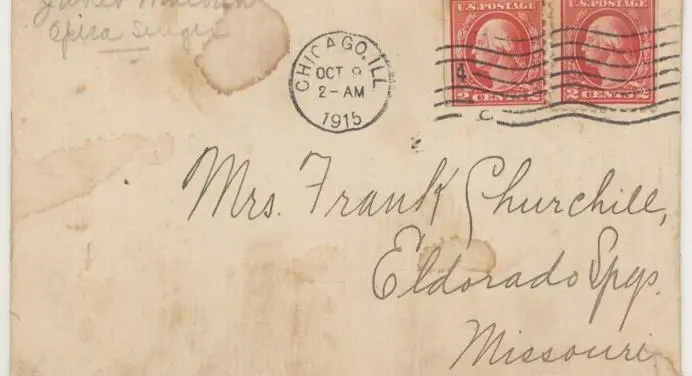 Opera Singer
CHICAGO, ILL.
OCT 9
2-AM
1915
U.S. POSTAGE
2 CENTS 2
U.S. POSTAGE
2 CENTS 2
Mrs. Frank Churchill,
Eldorado Spgs.
Missouri